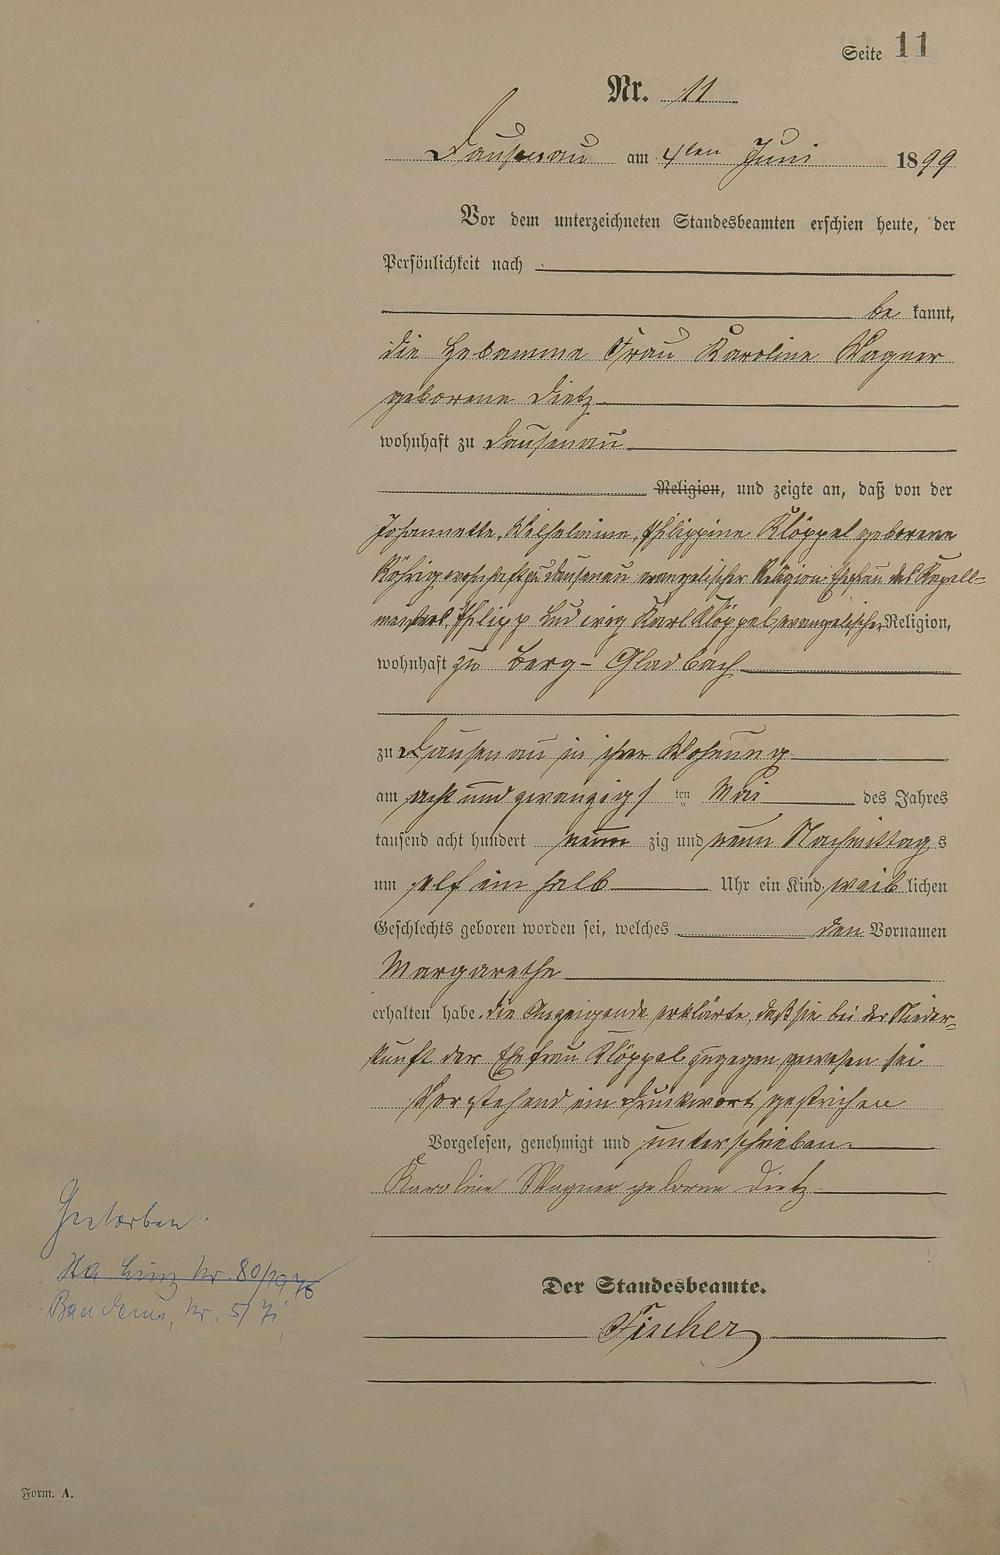 Seite 11
Nr. 11
Dausenau am 4ten Juni 1899
Vor dem unterzeichneten Standesbeamten erschien heute, der
Persönlichkeit nach
be kannt,
die Hebamme Frau Karoline Wagner
geborene Dietz
wohnhaft zu Dausenau
Religion, und zeigte an, daß von der
Johannette, Wilhelmine, Philippine Klöppel geborene
Röhrig wohnhaft zu Dausenau evangelischer Religion Ehefrau des Kapell-
meisters Philipp Ludwig Karl Klöppel evangelischer Religion,
wohnhaft zu Berg-Gladbach
zu Dausenau in ihrer Wohnung
am acht und zwanzigs ten Mai des Jahres
tausend acht hundert neun zig und neun Nachmittag s
um elf ein halb Uhr ein Kind weib lichen
Geschlechts geboren worden sei, welches den Vornamen
Margarethe
erhalten habe. Die Anzeigende erklärte, daß sie bei der Nieder-
kunft der Ehefrau Klöppel zugegen gewesen sei
Vorstehend ein Druckwort gestrichen
Vorgelesen, genehmigt und unterschrieben
Karoline Wagner geborne Dietz
Der Standesbeamte.
Fischer
Gestorben
Sta Linz Nr. 80/1976
Nr. 5/
Form. A.